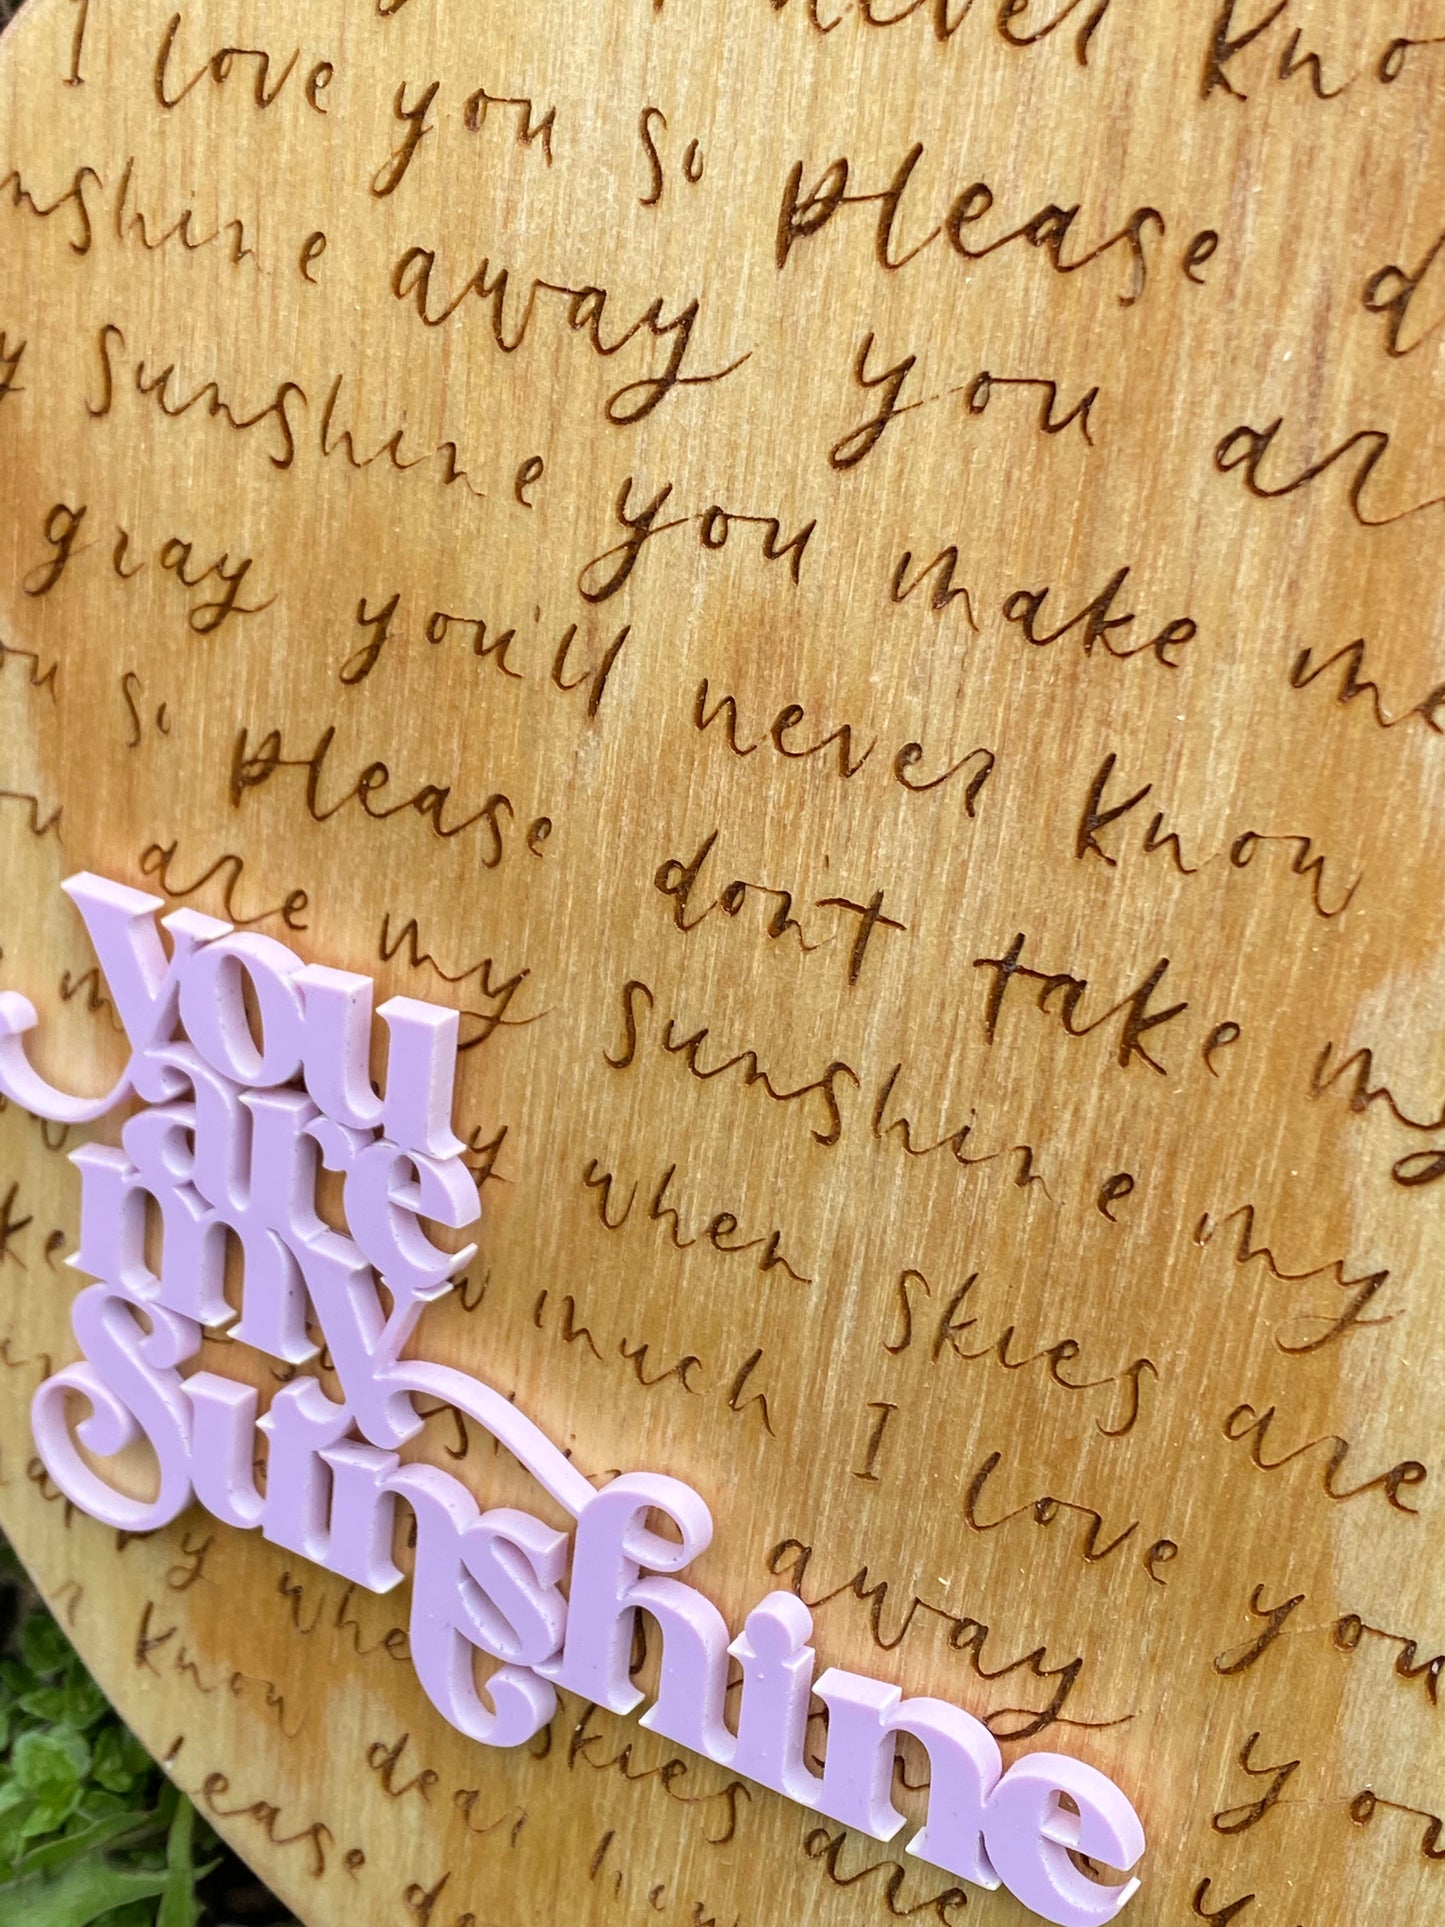 never kno
I love you so please d
nshine away you ar
y sunshine you make me
gray you'll never know
ou so please don't take my
ou are my sunshine my
y when skies are
w much I love you
away you
when skies are y
know dear
lease d
you
are
my
Sunshine